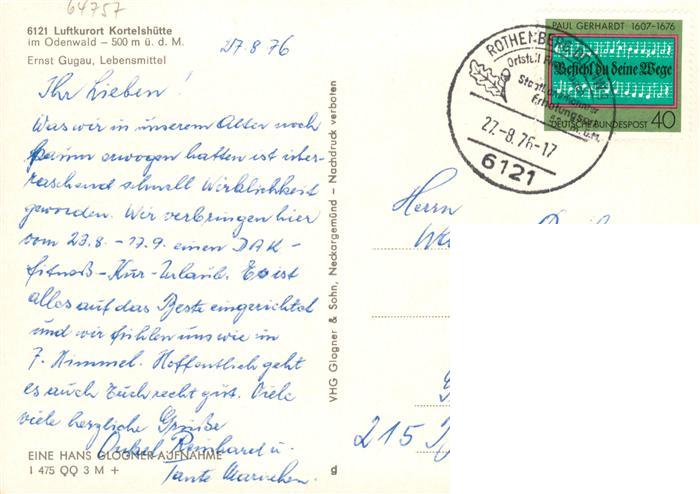 64757
6121 Luftkurort Kortelshütte
im Odenwald – 500 m ü. d. M.
Ernst Gugau, Lebensmittel
27.8.76
Ihr Lieben!
Was wir in unserem Alter noch
kaum erwogen hatten ist über-
raschend schnell Wirklichkeit
geworden. Wir verbringen hier
vom 23.8. – 17.9. einen DAK-
Fitneß-Kur-Urlaub. Es ist
alles auf das Beste eingerichtet
und wir fühlen uns wie im
7. Himmel. Hoffentlich geht
es auch Euch recht gut. Viele
viele herzliche Grüße
Onkel Reinhard u.
Tante Mariechen.
EINE HANS GLOGNER-AUFNAHME
1 475 QQ 3 M +
VHG Glogner & Sohn, Neckargemünd – Nachdruck verboten
g
PAUL GERHARDT 1607-1676
Befiehl du deine Wege
DEUTSCHE BUNDESPOST 40
ROTHENBERG
Ortsteil
Staatl. anerkannter
Erholungsort
27.-8.76-17
6121
Herrn
215